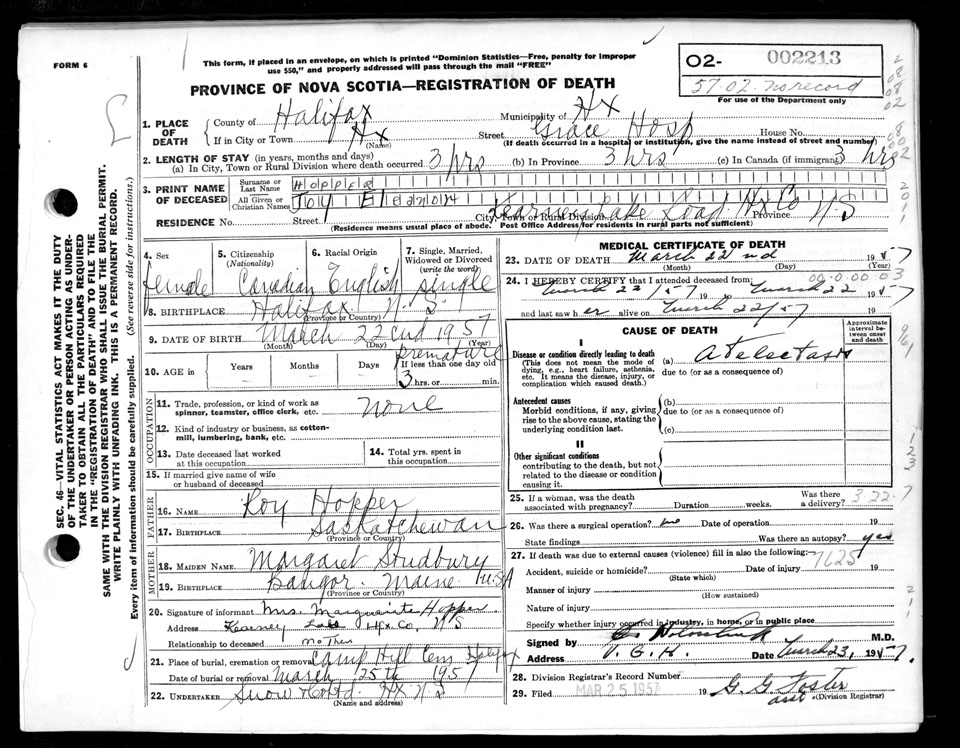 FORM 6
This form, if placed in an envelope, on which is printed "Dominion Statistics—Free, penalty for improper
use $50," and properly addressed will pass through the mail "FREE"
PROVINCE OF NOVA SCOTIA—REGISTRATION OF DEATH
O2- 002213
57-02-no record
For use of the Department only
1. PLACE OF DEATH
County of Halifax Municipality of Hx
If in City or Town Hx (Name) Street Grace Hosp House No.
(If death occurred in a hospital or institution, give the name instead of street and number)
2. LENGTH OF STAY (in years, months and days)
(a) In City, Town or Rural Division where death occurred 3 hrs (b) In Province 3 hrs (c) In Canada (if immigrant) 3 hrs
3. PRINT NAME OF DECEASED
Surname or Last Name HOPPER
All Given or Christian Names JOY
RESIDENCE No. Street City, Town or Rural Division Kearney Lake Road Hx Co Province N.S
(Residence means usual place of abode. Post Office Address for residents in rural parts not sufficient)
4. Sex female
5. Citizenship (Nationality) Canadian
6. Racial Origin English
7. Single, Married, Widowed or Divorced (write the word) single
8. BIRTHPLACE Halifax N. S.
(Province or Country)
9. DATE OF BIRTH March 22nd 1957
(Month) (Day) (Year)
premature
10. AGE in Years Months Days If less than one day old
3 hrs. or min.
OCCUPATION
11. Trade, profession, or kind of work as spinner, teamster, office clerk, etc. none
12. Kind of industry or business, as cotton-mill, lumbering, bank, etc.
13. Date deceased last worked at this occupation
14. Total yrs. spent in this occupation
15. If married give name of wife or husband of deceased
FATHER
16. NAME Roy Hopper
17. BIRTHPLACE Saskatchewan
(Province or Country)
MOTHER
18. MAIDEN NAME Margaret Sudbury
19. BIRTHPLACE Bangor Maine U.S.A
(Province or Country)
20. Signature of informant Mrs. Marguerite Hopper
Address Kearney Lake Hx. Co, N S
Relationship to deceased mother
21. Place of burial, cremation or removal Camp Hill Cem Halifax
Date of burial or removal March 25th 1957
22. UNDERTAKER Snow & Co Ltd. Hx N. S
(Name and address)
MEDICAL CERTIFICATE OF DEATH
23. DATE OF DEATH March 22nd 1957
(Month) (Day) (Year)
24. I HEREBY CERTIFY that I attended deceased from:
March 22/57 19 to March 22 1957
and last saw her alive on March 22/57 19
CAUSE OF DEATH
Approximate interval between onset and death
I
Disease or condition directly leading to death
(This does not mean the mode of dying, e.g., heart failure, asthenia, etc. It means the disease, injury, or complication which caused death.)
(a) Atelectasis
due to (or as a consequence of)
Antecedent causes
Morbid conditions, if any, giving rise to the above cause, stating the underlying condition last.
(b)
due to (or as a consequence of)
(c)
II
Other significant conditions
contributing to the death, but not related to the disease or condition causing it.
25. If a woman, was the death associated with pregnancy? Duration weeks. Was there a delivery? 3-22-7
26. Was there a surgical operation? no Date of operation 19
State findings Was there an autopsy? yes
27. If death was due to external causes (violence) fill in also the following:
7625
Accident, suicide or homicide? Date of injury 19
(State which)
Manner of injury
(How sustained)
Nature of injury
Specify whether injury occurred in industry, in home, or in public place
Signed by M.D.
Address V. G. H. Date March 23, 1957.
28. Division Registrar's Record Number
29. Filed MAR 25 1957 19 G. G. Foster
asst (Division Registrar)
SEC. 46—VITAL STATISTICS ACT MAKES IT THE DUTY
OF THE UNDERTAKER OR PERSON ACTING AS UNDER-
TAKER TO OBTAIN ALL THE PARTICULARS REQUIRED
IN THE "REGISTRATION OF DEATH" AND TO FILE THE
SAME WITH THE DIVISION REGISTRAR WHO SHALL ISSUE THE BURIAL PERMIT.
WRITE PLAINLY WITH UNFADING INK. THIS IS A PERMANENT RECORD.
Every item of information should be carefully supplied. (See reverse side for instructions.)